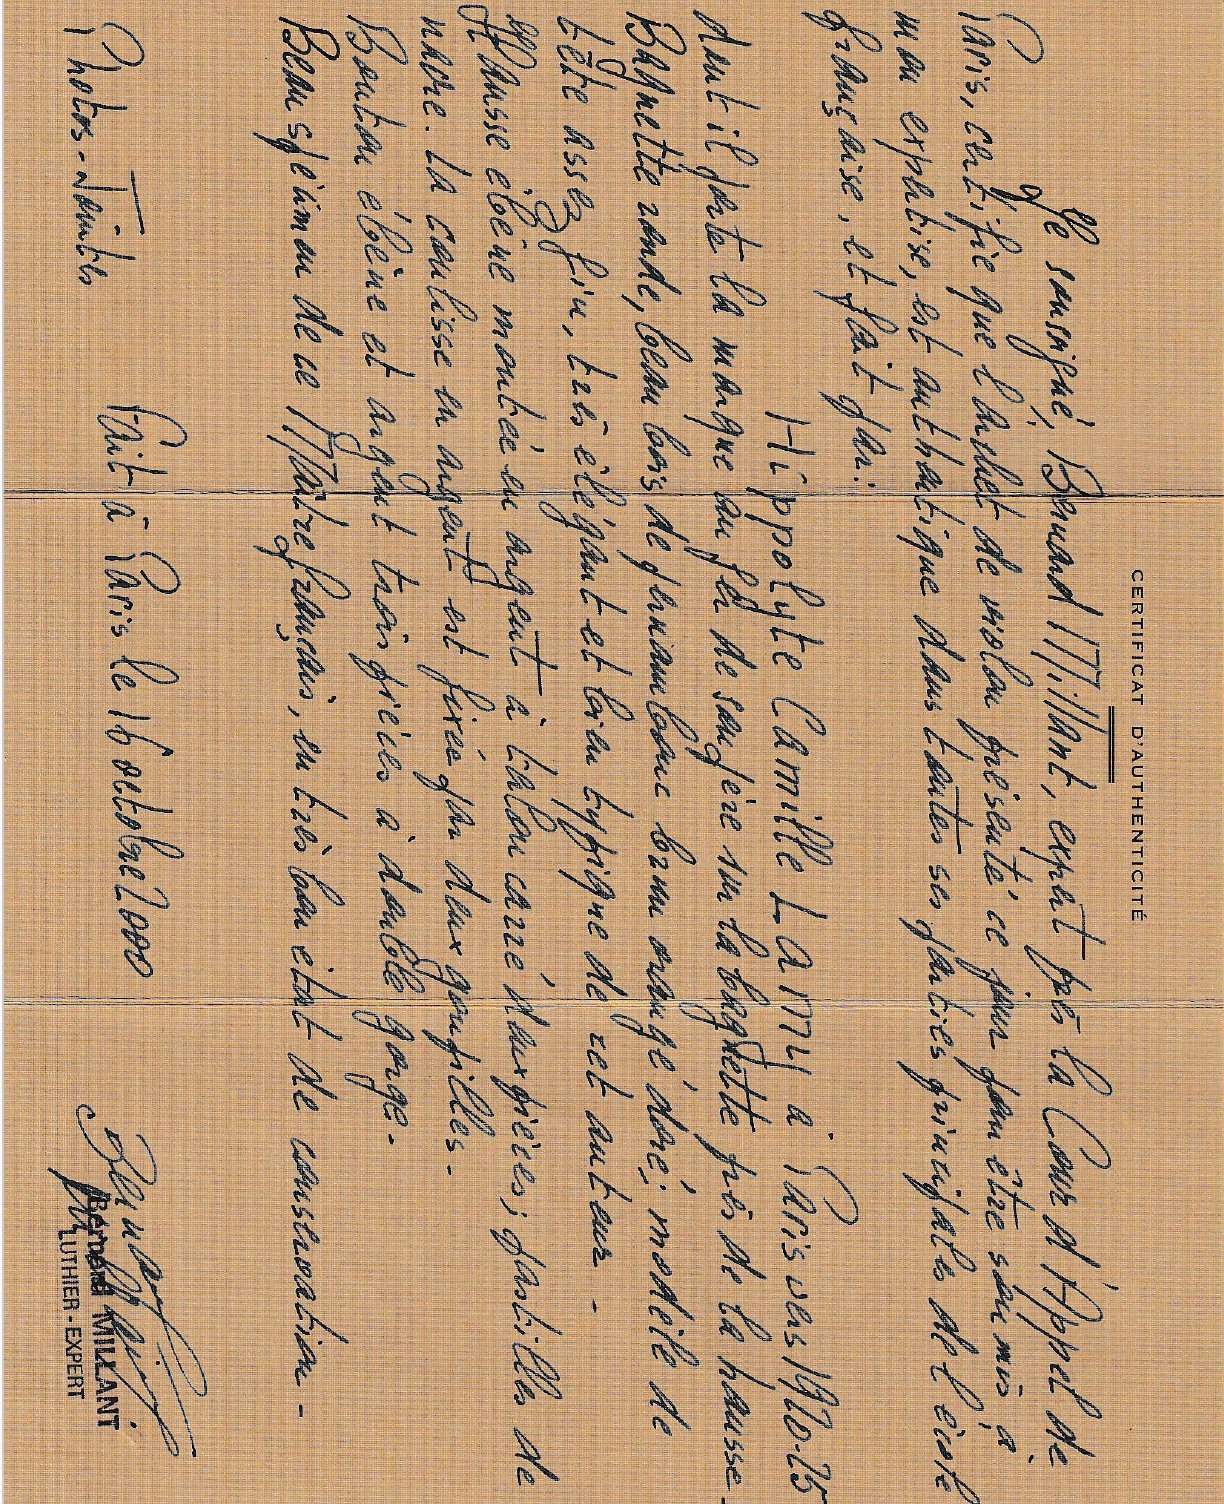 CERTIFICAT D'AUTHENTICITÉ
Je soussigné, Bernard Millant, expert près la Cour d'Appel de
Paris, certifie que l'archet de violon présenté ce jour pour être soumis à
mon expertise, est authentique dans toutes ses parties principales de l'école
française, et fait par:
Hippolyte Camille LAMY à Paris vers 1920-25
dont il porte la marque au fer de son père sur la baguette près de la hausse.
Baguette ronde, beau bois de pernambouc brun orangé doré; modèle de
tête assez fin, très élégant et bien typique de cet auteur -
Hausse ébène montée en argent à talon carré deux pièces; pastilles de
nacre. La coulisse en argent est fixée par deux goupilles -
Bouton ébène et argent trois pièces à double gorge -
Beau spécimen de ce Maître français, en très bon état de conservation -
Fait à Paris le 16 octobre 2000
Photos-Jointes
Bernard MILLANT
LUTHIER-EXPERT